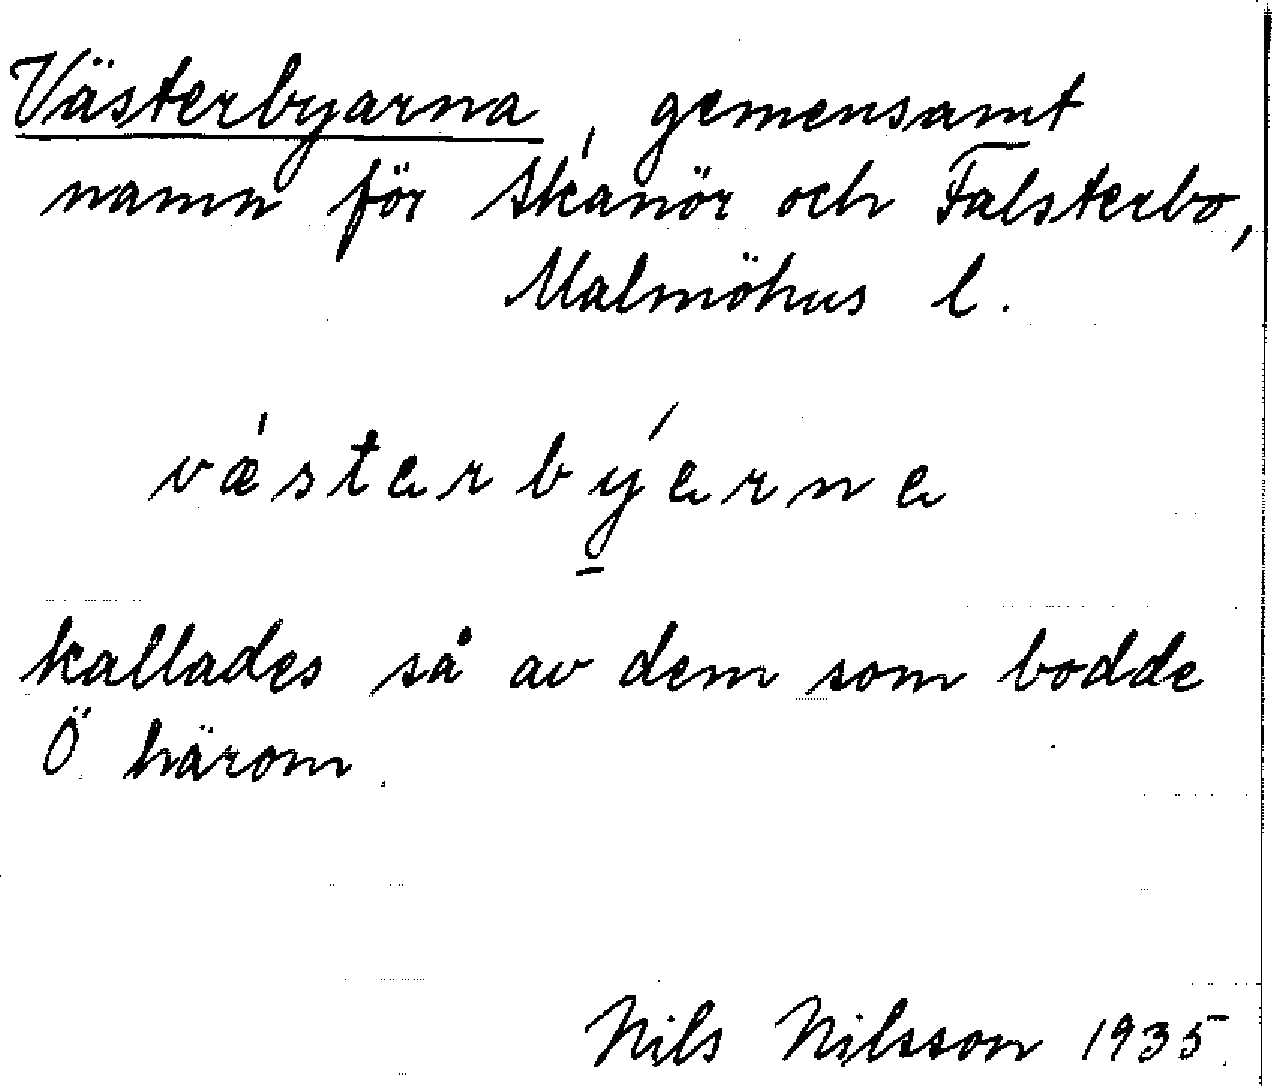 Västerbyarna, gemensamt
namn för Skanör och Falsterbo,
Malmöhus l.
vǽsterbýerne
kallades så av dem som bodde
Ö härom.
Nils Nilsson 1935.